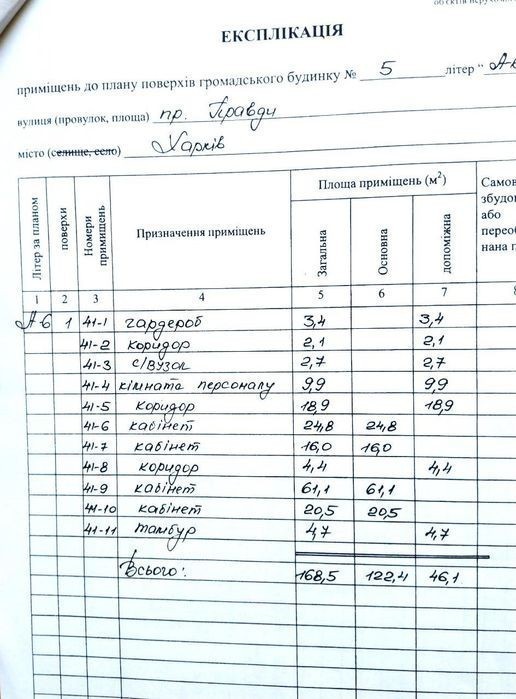 ЕКСПЛІКАЦІЯ
приміщень до плану поверхів громадського будинку № 5 літер "А-6
вулиця (провулок, площа) пр. Правди
місто (селище, село) Харків
Літер за планом поверхи Номери примищень Призначення приміщень Площа приміщень (м²) Загальна Основна допоміжна
1 2 3 4 5 6 7 8
А-6 1 41-1 гардероб 3,4 3,4
41-2 коридор 2,1 2,1
41-3 с/вузол 2,7 2,7
41-4 кімната персоналу 9,9 9,9
41-5 коридор 18,9 18,9
41-6 кабінет 24,8 24,8
41-7 кабінет 16,0 16,0
41-8 коридор 4,4 4,4
41-9 кабінет 61,1 61,1
41-10 кабінет 20,5 20,5
41-11 тамбур 4,7 4,7
Всього: 168,5 122,4 46,1